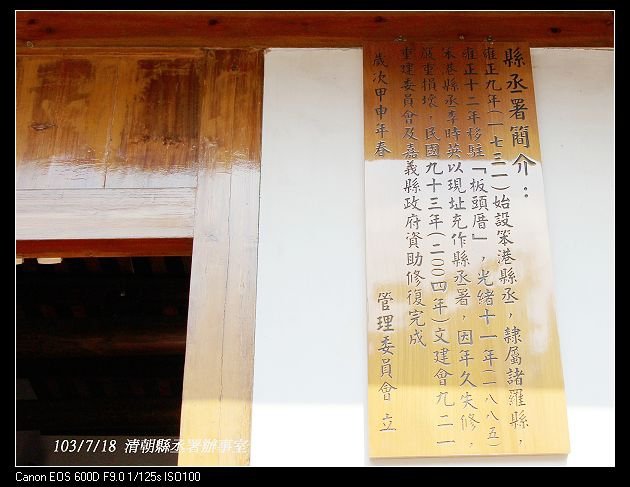 縣丞署簡介：
雍正九年(一七三一)始設笨港縣丞，隸屬諸羅縣，
雍正十二年移駐「板頭厝」，光緒十一年(一八八五)
笨港縣丞李時英以現址充作縣丞署，因年久失修，
嚴重損壞，民國九十三年(二00四年)文建會九二一
重建委員會及嘉義縣政府資助修復完成
歲次甲申年春
管理委員會 立
103/7/18 清朝縣丞署辦事室
Canon EOS 600D F9.0 1/125s ISO100